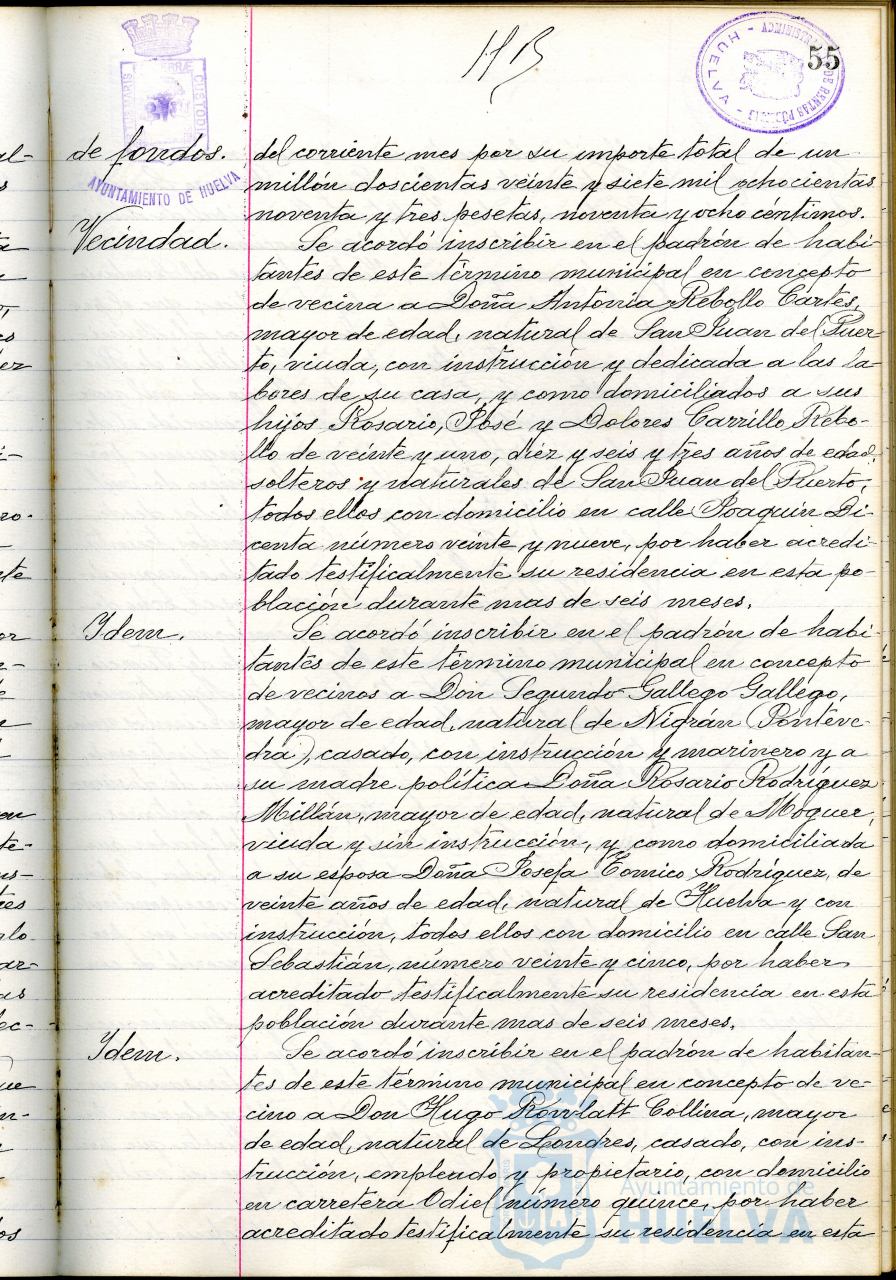 HB
55
AYUNTAMIENTO DE HUELVA
HUELVA
de fondos.
del corriente mes por su importe total de un
millón doscientas veinte y siete mil ochocientas
noventa y tres pesetas, noventa y ocho céntimos.
Vecindad.
Se acordó inscribir en el padrón de habi-
tantes de este término municipal en concepto
de vecina a Doña Antonia Rebollo Cartes,
mayor de edad, natural de San Juan del Puer-
to, viuda, con instrucción y dedicada a las la-
bores de su casa, y como domiciliados a sus
hijos Rosario, José y Dolores Carrillo Rebo-
llo de veinte y uno, diez y seis y tres años de edad,
solteros y naturales de San Juan del Puerto;
todos ellos con domicilio en calle Joaquin Di-
centa número veinte y nueve, por haber acredi-
tado testificalmente su residencia en esta po-
blación durante mas de seis meses.
Idem.
Se acordó inscribir en el padrón de habi-
tantes de este término municipal en concepto
de vecinos a Don Segundo Gallego Gallego,
mayor de edad, natural de Nigrán (Ponteve-
dra), casado, con instrucción y marinero y a
su madre política Doña Rosario Rodríguez
Millán, mayor de edad, natural de Moguer,
viuda y sin instrucción, y como domiciliada
a su esposa Doña Josefa Tomico Rodríguez, de
veinte años de edad, natural de Huelva y con
instrucción, todos ellos con domicilio en calle San
Sebastián, número veinte y cinco, por haber
acreditado testificalmente su residencia en esta
población durante mas de seis meses.
Idem.
Se acordó inscribir en el padrón de habitan-
tes de este término municipal en concepto de ve-
cino a Don Hugo Rowlatt Collina, mayor
de edad, natural de Londres, casado, con ins-
trucción, empleado y propietario, con domicilio
en carretera Odiel número quince, por haber
acreditado testificalmente su residencia en esta
Ayuntamiento de
HUELVA